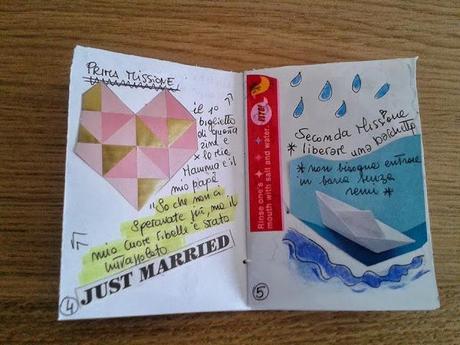 PRIMA MISSIONE
il 10
biglietto
di questa
zine è
x la mia
Mamma e il
mio papà
"So che non ci
speravate più, ma il
mio cuore ribelle è stato
intrappolato
JUST MARRIED
4
Rinse one's
mouth with salt and water.
Seconda Missione
* liberare una barchetta
* non bisogna entrare
in barca senza
remi *
5